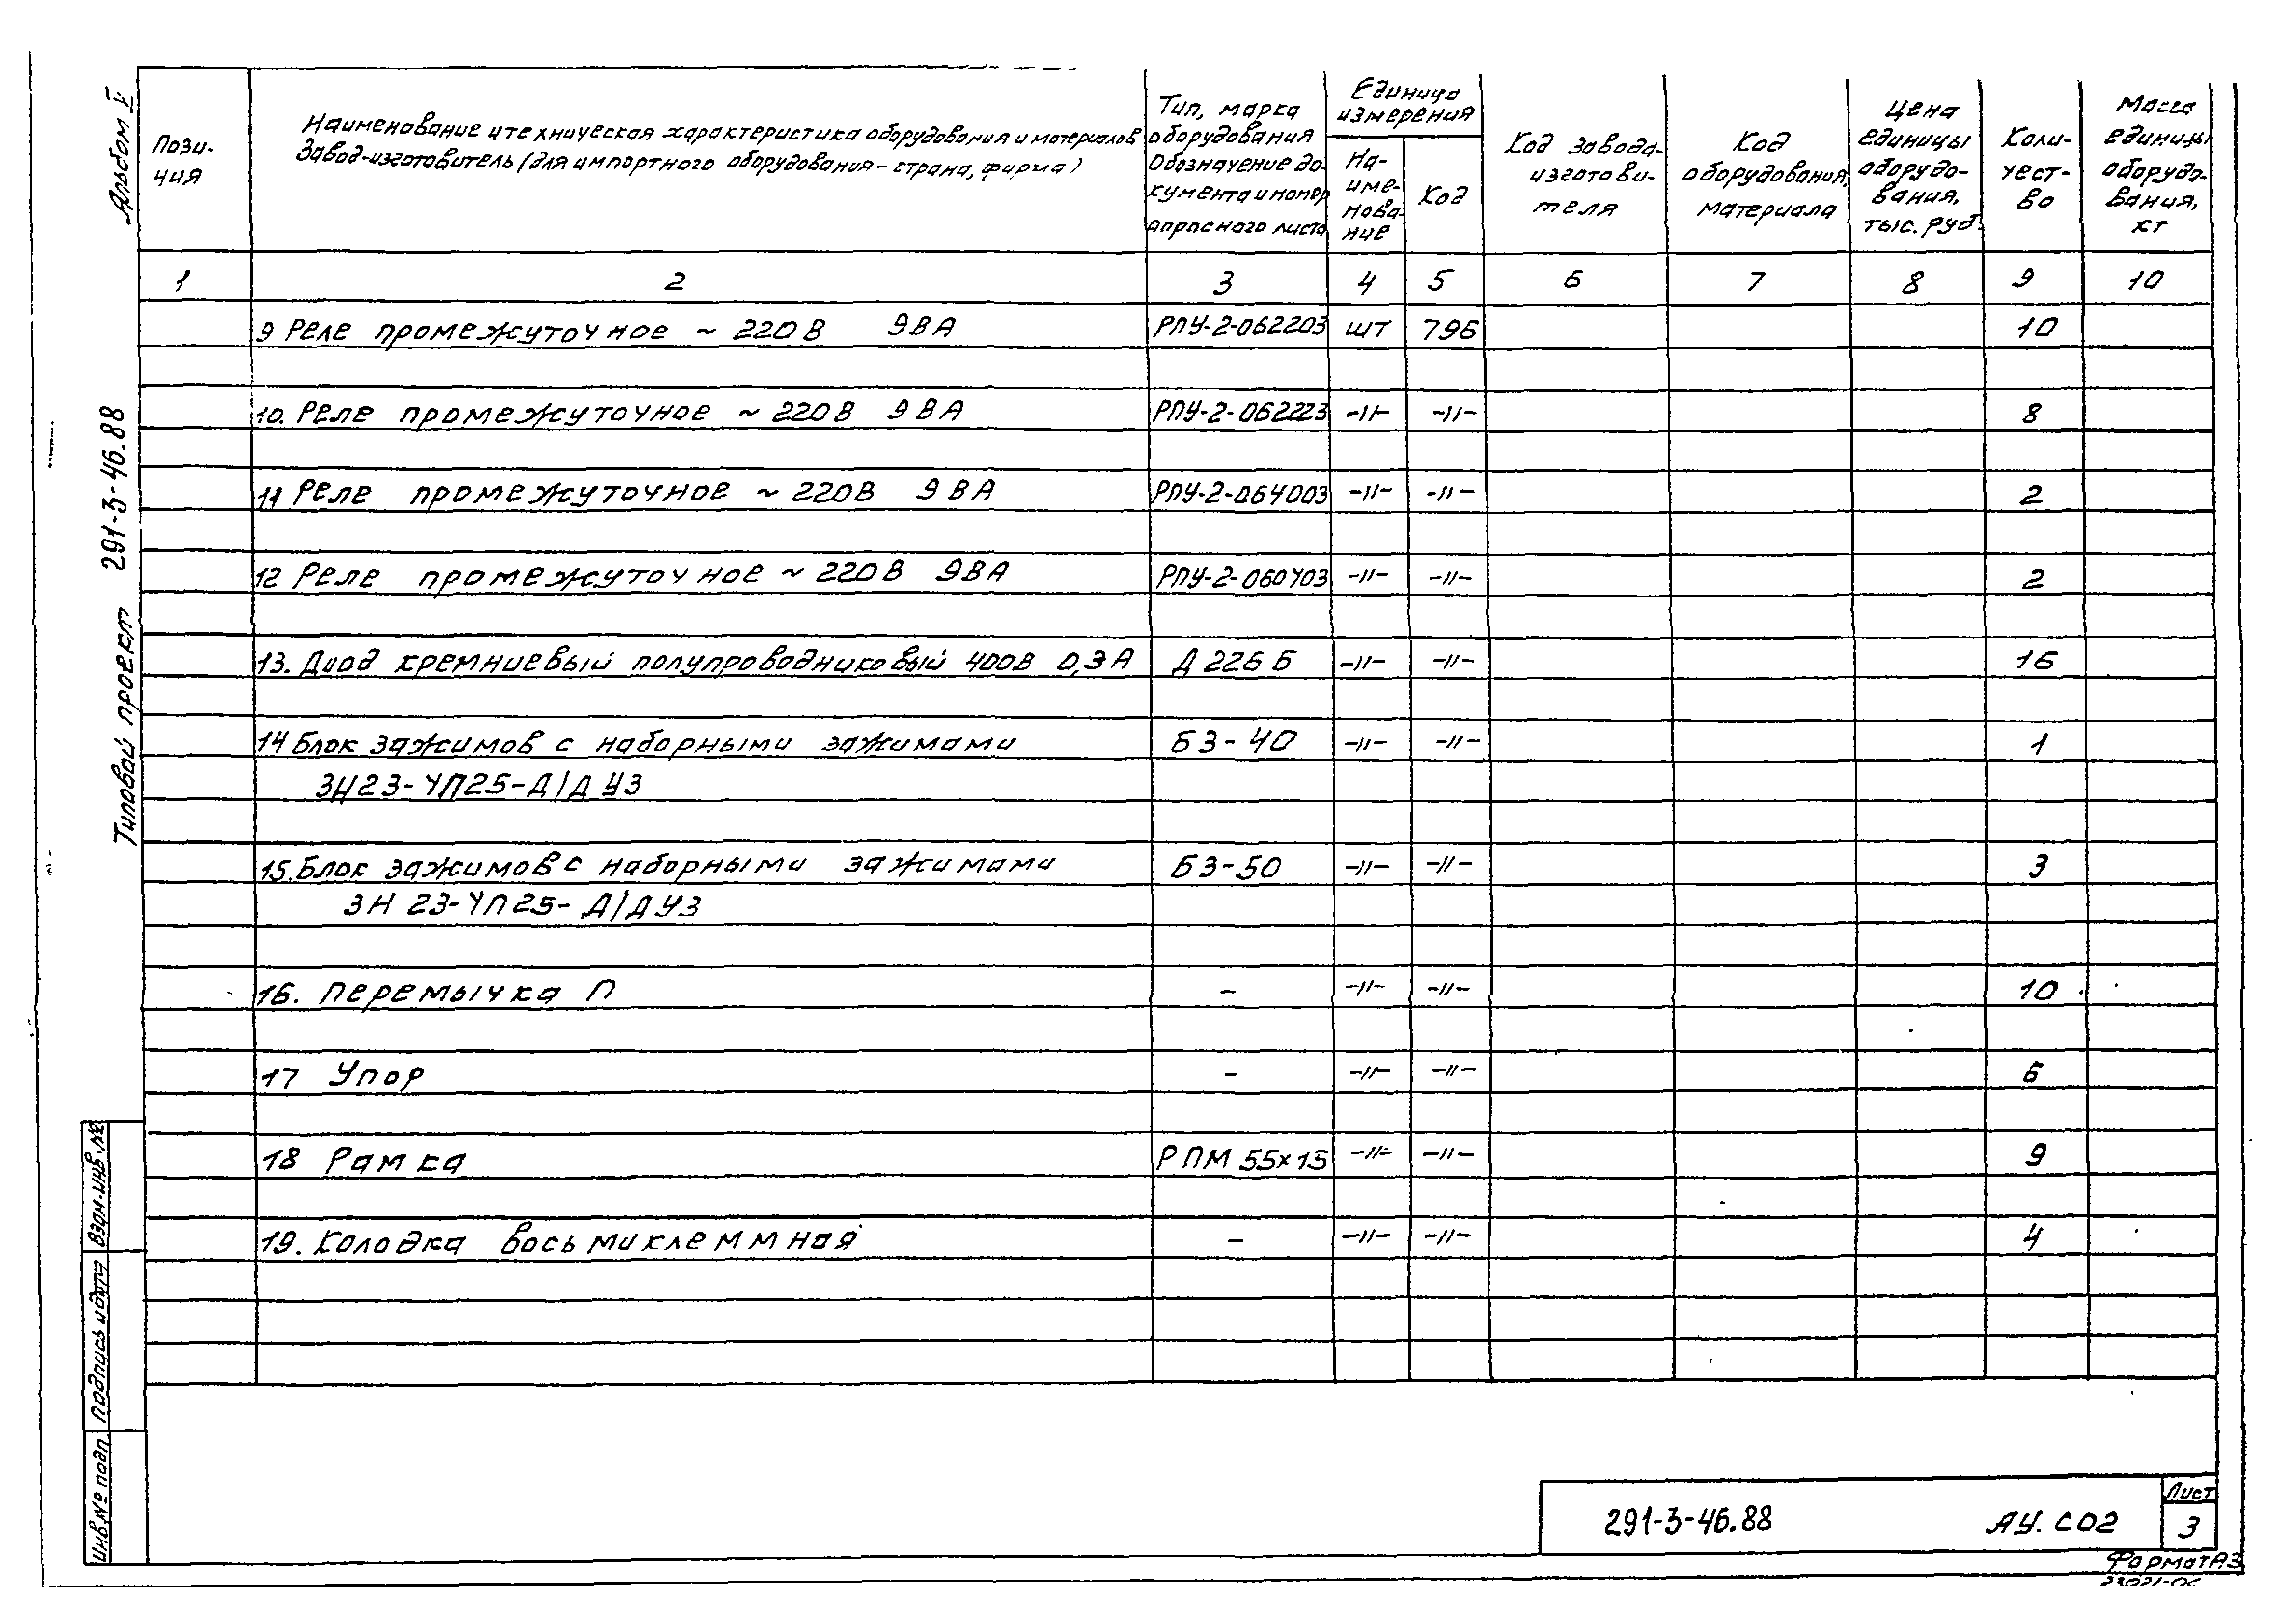 Альбом V
Типовой проект 291-3-46.88
Пози-
ция
Наименование и техническая характеристика оборудования и материалов
Завод-изготовитель (для импортного оборудования - страна, фирма)
Тип, марка
оборудования
Обозначение до-
кумента и номер
опросного листа
Единица
измерения
На-
име-
нова-
ние
Код
Код завода-
изготови-
теля
Код
оборудования,
материала
Цена
единицы
оборудо-
вания,
тыс. руб.
Коли-
чест-
во
Масса
единицы
оборудо-
вания,
кг
1 2 3 4 5 6 7 8 9 10
9 Реле промежуточное ~ 220В 9ВА РПУ-2-062203 шт 796 10
10. Реле промежуточное ~ 220В 9ВА РПУ-2-062223 -//- -//- 8
11 Реле промежуточное ~ 220В 9ВА РПУ-2-064003 -//- -//- 2
12 Реле промежуточное ~ 220В 9ВА РПУ-2-060403 -//- -//- 2
13. Диод кремниевый полупроводниковый 400В 0,3А Д 226 Б -//- -//- 16
14 Блок зажимов с наборными зажимами БЗ-40 -//- -//- 1
ЗН23-4П25-Д/Д У3
15. Блок зажимов с наборными зажимами БЗ-50 -//- -//- 3
ЗН 23-4П25-Д/Д У3
16. Перемычка П - -//- -//- 10
17 Упор - -//- -//- 6
18 Рамка РПМ 55х15 -//- -//- 9
19. Колодка восьмиклеммная - -//- -//- 4
Взам. инв. №
Подпись и дата
Инв. № подл.
291-3-46.88 АУ. СО2
Лист
3
Формат А3